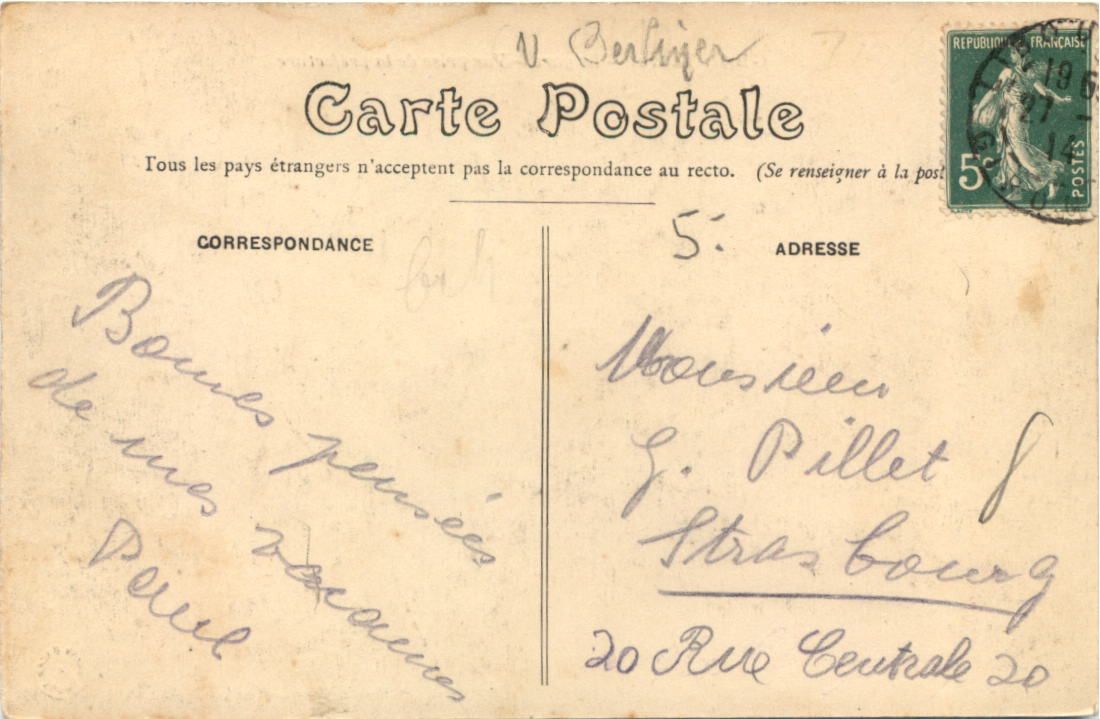 V. Berliyer
Carte Postale
Tous les pays étrangers n'acceptent pas la correspondance au recto. (Se renseigner à la post
RÉPUBLIQUE FRANÇAISE
5c
POSTES
5.
CORRESPONDANCE
ADRESSE
Bonnes pensées
de mes vacances
Paul
Monsieur
G. Pillet
Strasbourg
20 Rue Centrale 20